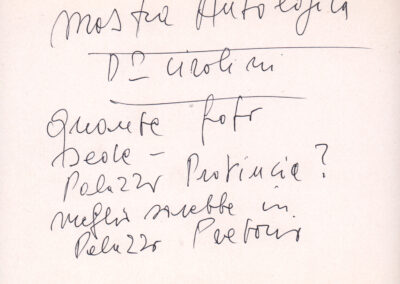 Mostra Antologica
Dr Cirolini
Quante foto
sede -
Palazzo Provincia?
meglio sarebbe in
Palazzo Pretorio